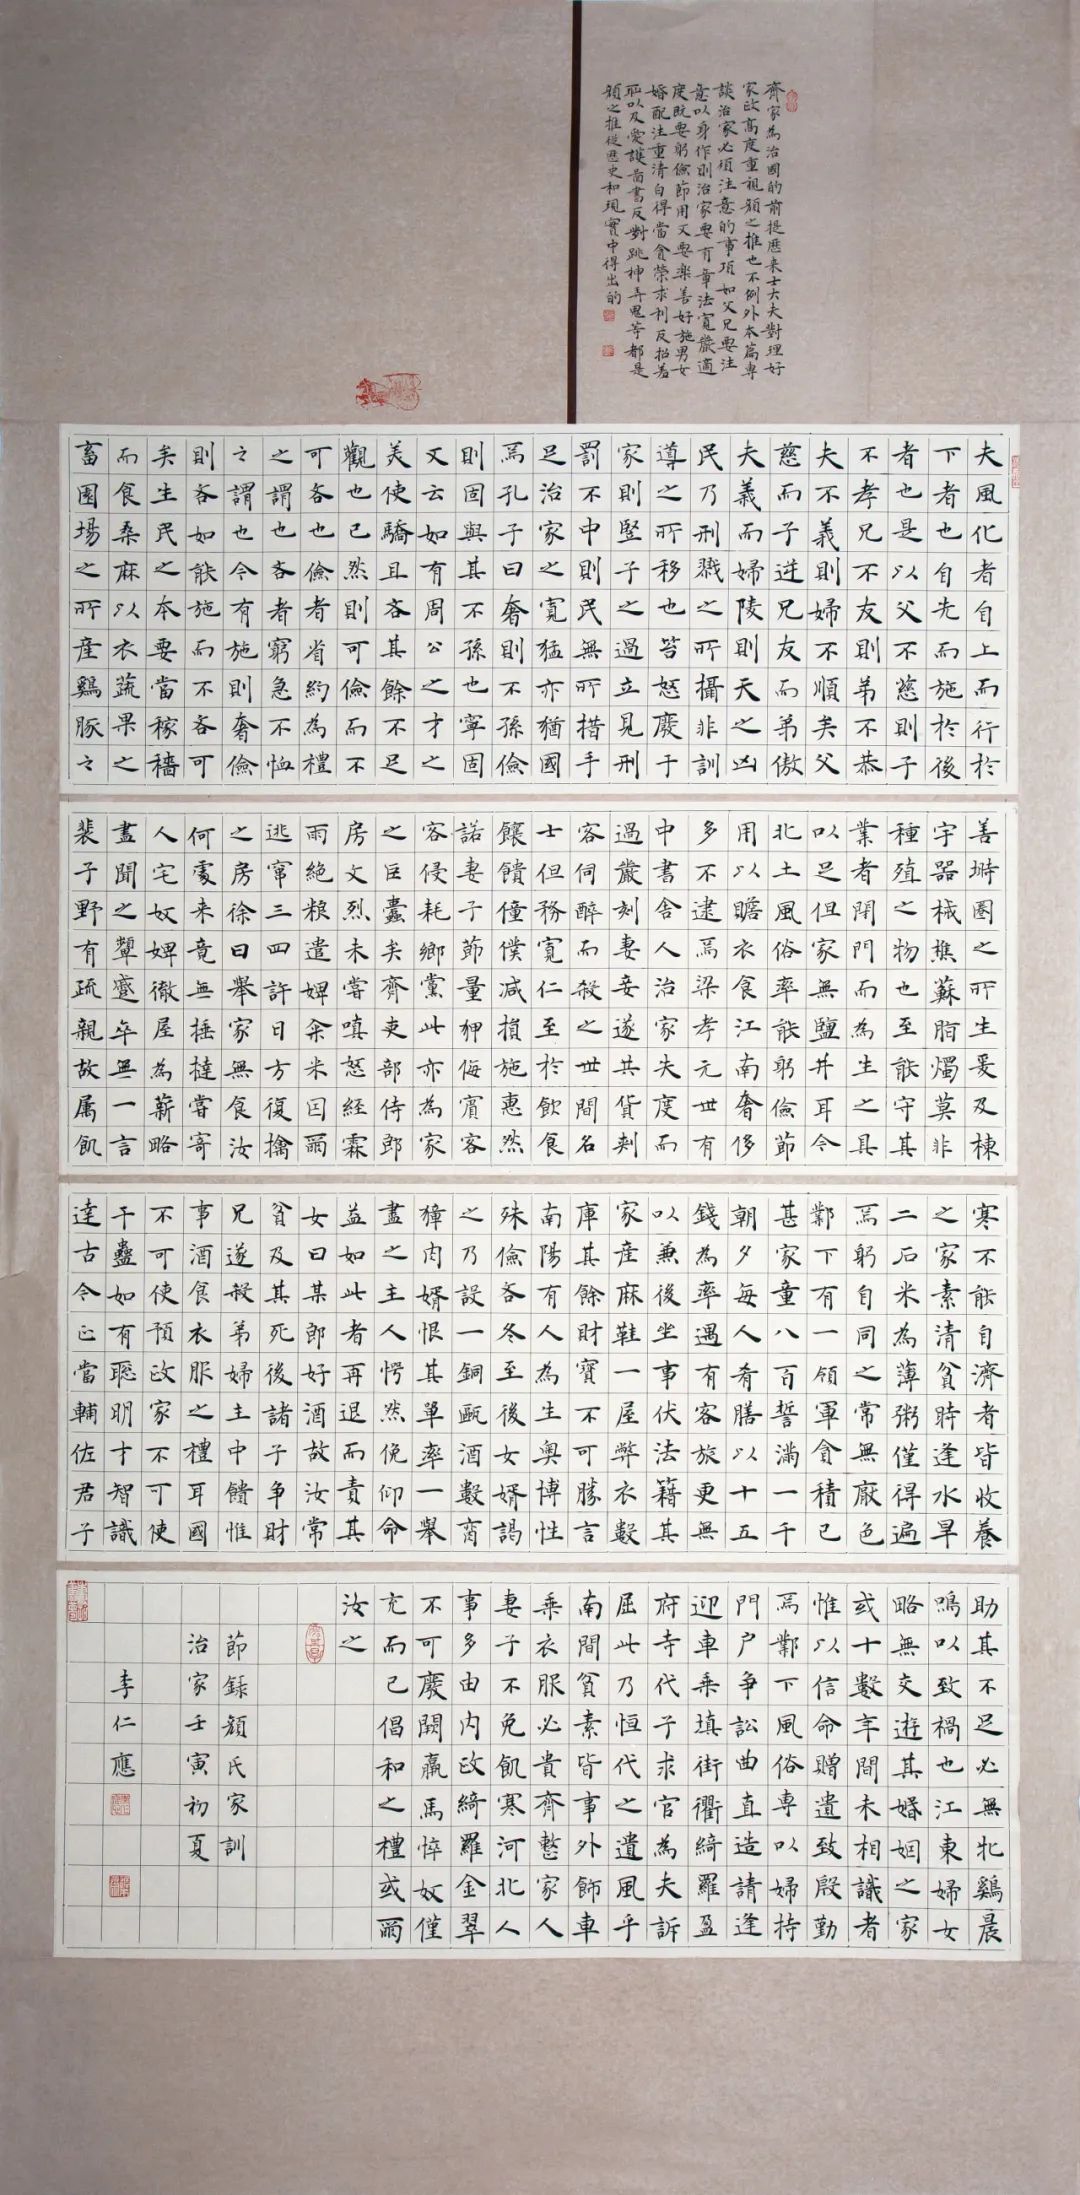 齊家為治國的前提歷来士大夫對理好
家政高度重視顏之推也不例外本篇專
談治家必須注意的事項如父兄要注
意以身作則治家要有章法寬嚴適
度既要躬儉節用又要樂善好施男女
婚配注重清白得當貪榮求利反招羞
耻以及愛護啚書反對跳神弄鬼等都是
顏之推從歷史和現實中得出的
夫風化者自上而行於
下者也自先而施於後
者也是以父不慈則子
不孝兄不友則弟不恭
夫不義則婦不順矣父
慈而子逆兄友而弟傲
夫義而婦陵則天之凶
民乃刑戮之所攝非訓
導之所移也笞怒廢于
家則竪子之過立見刑
罰不中則民無所措手
足治家之寬猛亦猶國
焉孔子曰奢則不孫儉
則固與其不孫也寧固
又云如有周公之才之
美使驕且吝其餘不足
觀也已然則可儉而不
可吝也儉者省約為禮
之謂也吝者窮急不恤
之謂也今有施則奢儉
則吝如能施而不吝可
矣生民之本要當稼穡
而食桑麻以衣蔬果之
畜園場之所産鷄豚之
善塒圈之所生爰及棟
宇器械樵蘇脂燭莫非
種殖之物也至能守其
業者閉門而為生之具
以足但家無鹽井耳今
北土風俗率能躬儉節
用以贍衣食江南奢侈
多不逮焉梁孝元世有
中書舍人治家失度而
過嚴刻妻妾遂共貨刺
客伺醉而殺之世間名
士但務寬仁至於飲食
饟饋僮僕减損施惠然
諾妻子節量狎侮賓客
客侵耗鄉黨此亦為家
之巨蠹矣齊吏部侍郎
房文烈未嘗嗔怒經霖
雨絶粮遣婢籴米因爾
逃竄三四許日方復擒
之房徐曰舉家無食汝
何處来竟無捶撻嘗寄
人宅奴婢徹屋為薪略
盡聞之顰蹙卒無一言
裴子野有疏親故属飢
寒不能自濟者皆收養
之家素清貧時逢水旱
二石米為薄粥僅得遍
焉躬自同之常無厭色
鄴下有一領軍貪積已
甚家童八百誓滿一千
朝夕每人肴膳以十五
錢為率遇有客旅更無
以兼後坐事伏法籍其
家産麻鞋一屋弊衣數
庫其餘財寶不可勝言
南陽有人為生奥博性
殊儉吝冬至後女婿謁
之乃設一銅甌酒數臠
獐肉婿恨其單率一舉
盡之主人愕然俛仰命
益如此者再退而責其
女曰某郎好酒故汝常
貧及其死後諸子争財
兄遂殺弟婦主中饋惟
事酒食衣服之禮耳國
不可使預政家不可使
干蠱如有聰明才智識
達古今正當輔佐君子
助其不足必無牝鷄晨
鳴以致禍也江東婦女
略無交遊其婚姻之家
或十數年間未相識者
惟以信命贈遺致殷勤
焉鄴下風俗專以婦持
門户争訟曲直造請逢
迎車乘填街衢綺羅盈
府寺代子求官為夫訴
屈此乃恒代之遺風乎
南間貧素皆事外飾車
乘衣服必貴齊整家人
妻子不免飢寒河北人
事多由内政綺羅金翠
不可廢闕羸馬悴奴僅
充而已倡和之禮或爾
汝之
節録顏氏家訓
治家壬寅初夏
李仁應